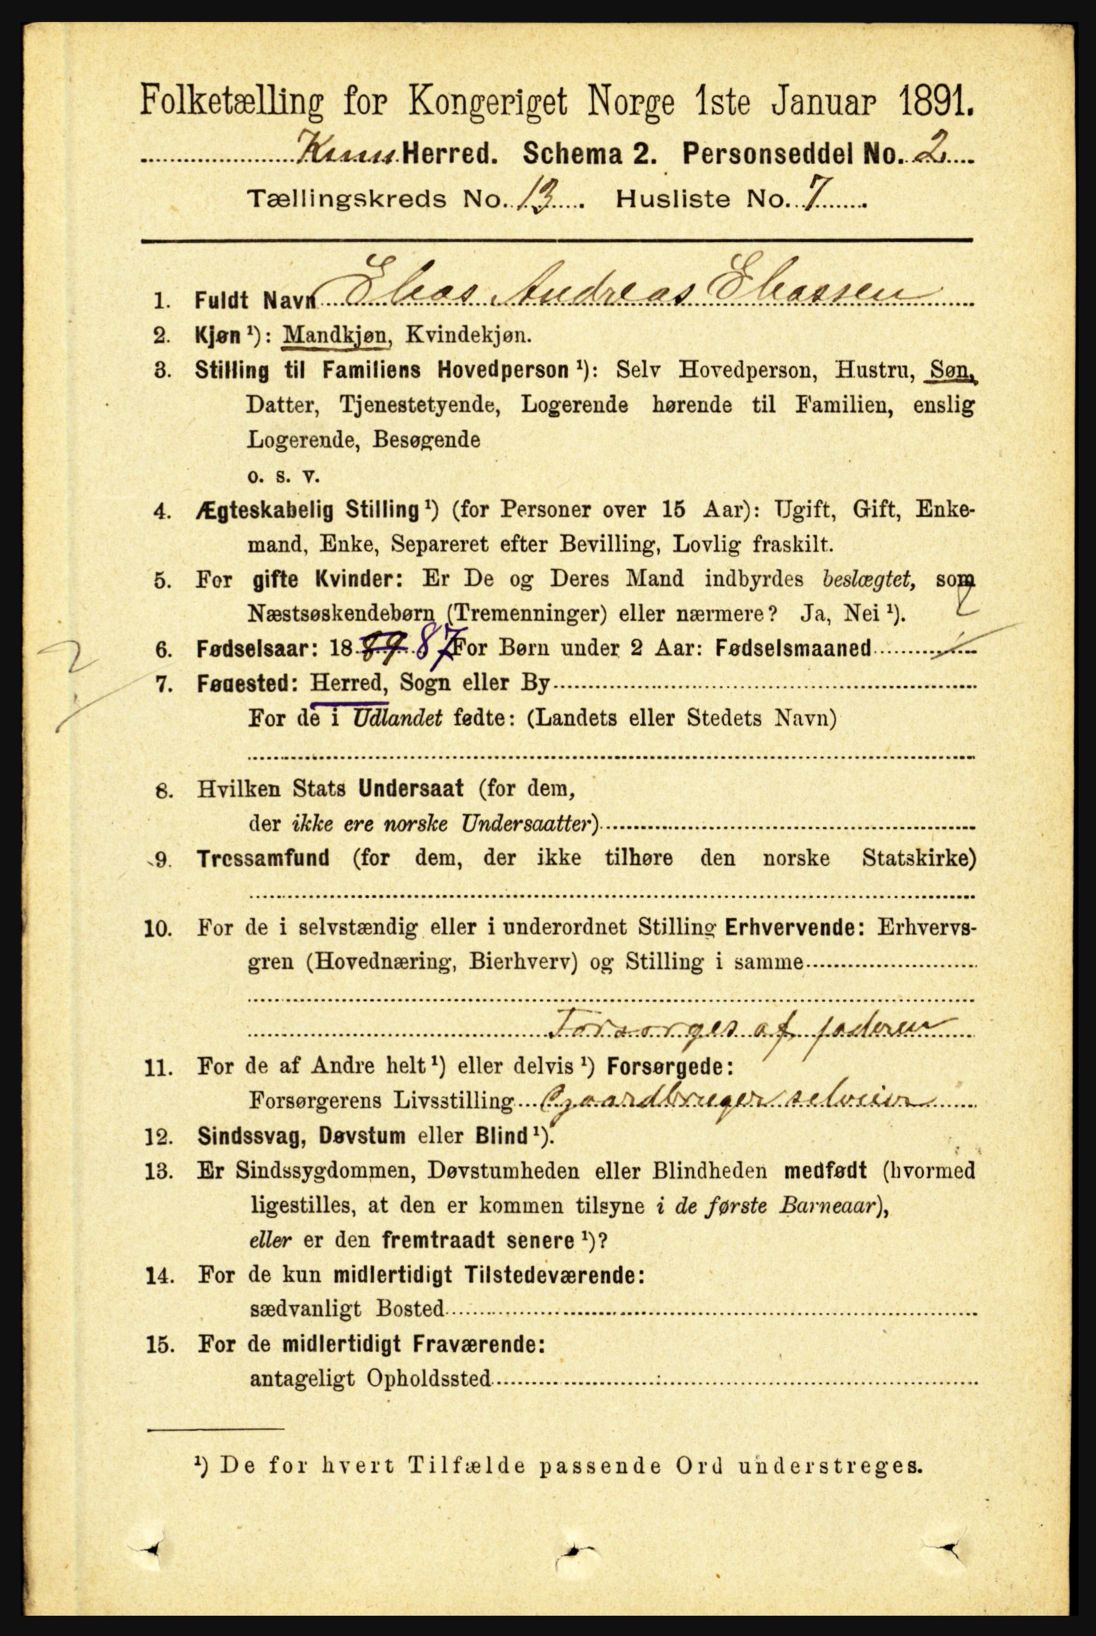 Folketælling for Kongeriget Norge 1ste Januar 1891.
Kinn Herred. Schema 2. Personseddel No. 2
Tællingskreds No. 13. Husliste No. 7.
1. Fuldt Navn Elias Andreas Eliassen
2. Kjøn ¹): Mandkjøn, Kvindekjøn.
3. Stilling til Familiens Hovedperson ¹): Selv Hovedperson, Hustru, Søn,
Datter, Tjenestetyende, Logerende hørende til Familien, enslig
Logerende, Besøgende
o. s. v.
4. Ægteskabelig Stilling ¹) (for Personer over 15 Aar): Ugift, Gift, Enke-
mand, Enke, Separeret efter Bevilling, Lovlig fraskilt.
5. For gifte Kvinder: Er De og Deres Mand indbyrdes beslægtet, som
Næstsøskendebørn (Tremenninger) eller nærmere? Ja, Nei ¹).
6. Fødselsaar: 1889 87 For Børn under 2 Aar: Fødselsmaaned
7. Fødested: Herred, Sogn eller By
For de i Udlandet fødte: (Landets eller Stedets Navn)
8. Hvilken Stats Undersaat (for dem,
der ikke ere norske Undersaatter)
9. Trossamfund (for dem, der ikke tilhøre den norske Statskirke)
10. For de i selvstændig eller i underordnet Stilling Erhvervende: Erhvervs-
gren (Hovednæring, Bierhverv) og Stilling i samme
Forsørges af faderen
11. For de af Andre helt ¹) eller delvis ¹) Forsørgede:
Forsørgerens Livsstilling Gaardbruger selveier
12. Sindssvag, Døvstum eller Blind ¹).
13. Er Sindssygdommen, Døvstumheden eller Blindheden medfødt (hvormed
ligestilles, at den er kommen tilsyne i de første Barneaar),
eller er den fremtraadt senere ¹)?
14. For de kun midlertidigt Tilstedeværende:
sædvanligt Bosted
15. For de midlertidigt Fraværende:
antageligt Opholdssted
¹) De for hvert Tilfælde passende Ord understreges.